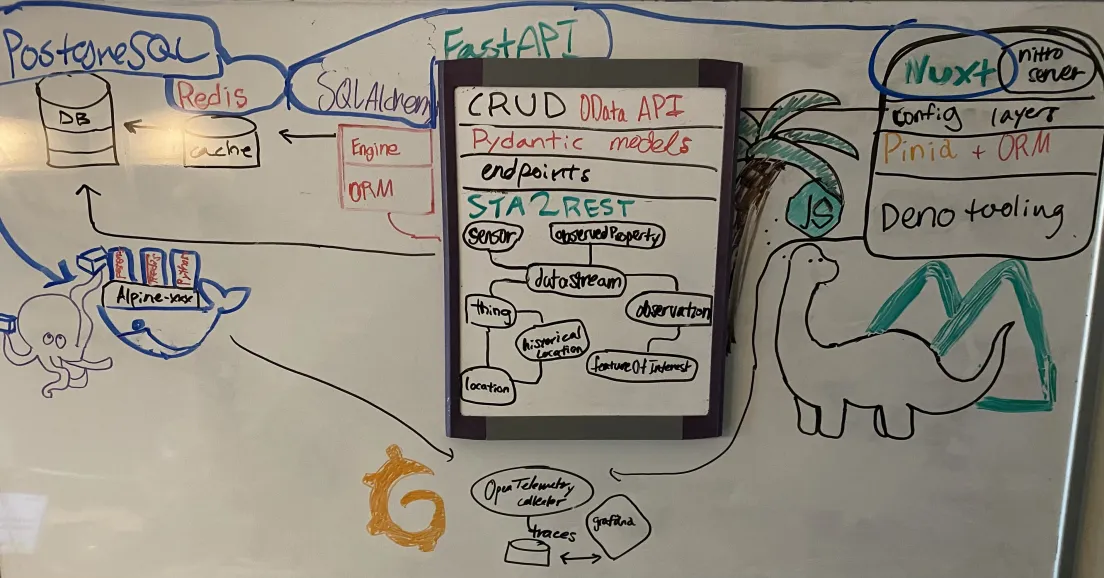 PostgreSQL
DB
Redis
cache
SQLAlchem
Engine
ORM
FastAPI
CRUD OData API
Pydantic models
endpoints
STA2REST
sensor
observedProperty
datastream
thing
observation
historical
location
featureOfInterest
location
Nuxt
nitro
server
config layers
Pinia + ORM
Deno tooling
JS
Alpine-xxx
OpenTelemetry
collector
traces
grafana